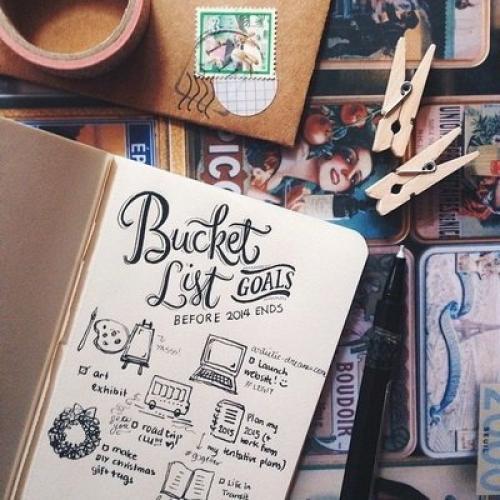 Bucket
List GOALS
BEFORE 2014 ENDS
yasss!
art
exhibit
artistic-dreams.com
Launch
website!
road trip
make
DIY christmas
gift tags
2015
Plan my
2015 (+
work from
my tentative plans)
#together
Life in
Transit
ÉP
PICO
BOUDOIR
SEUIL